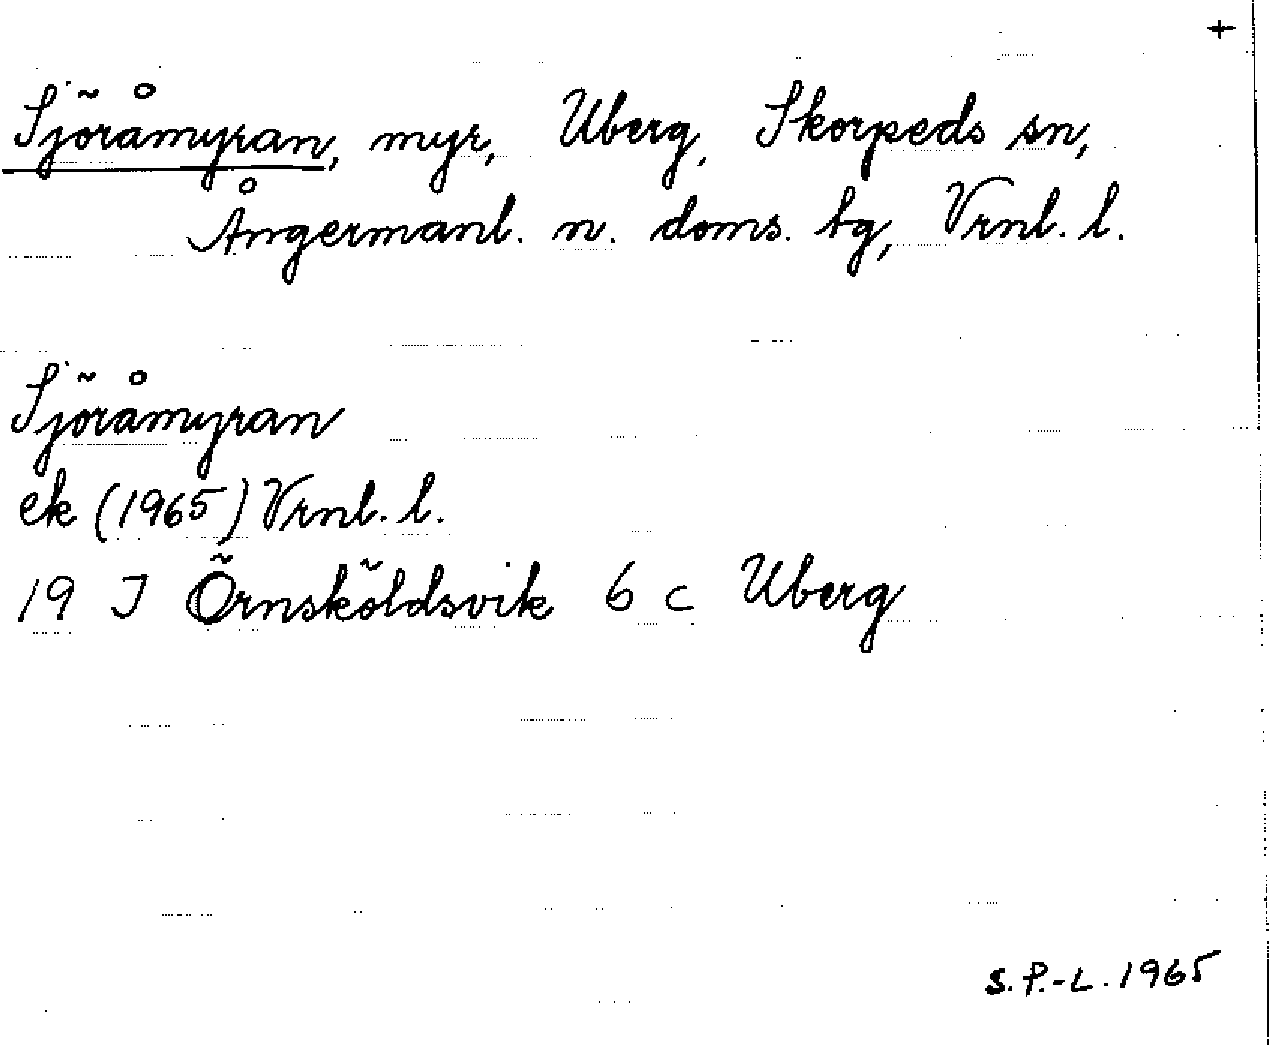 +
Sjöråmyran, myr, Uberg, Skorpeds sn,
Ångermanl. n. doms. tg, Vrnl. l.
Sjöråmyran
ek (1965) Vrnl. l.
19 J Örnsköldsvik 6 c Uberg
S. P.-L. 1965